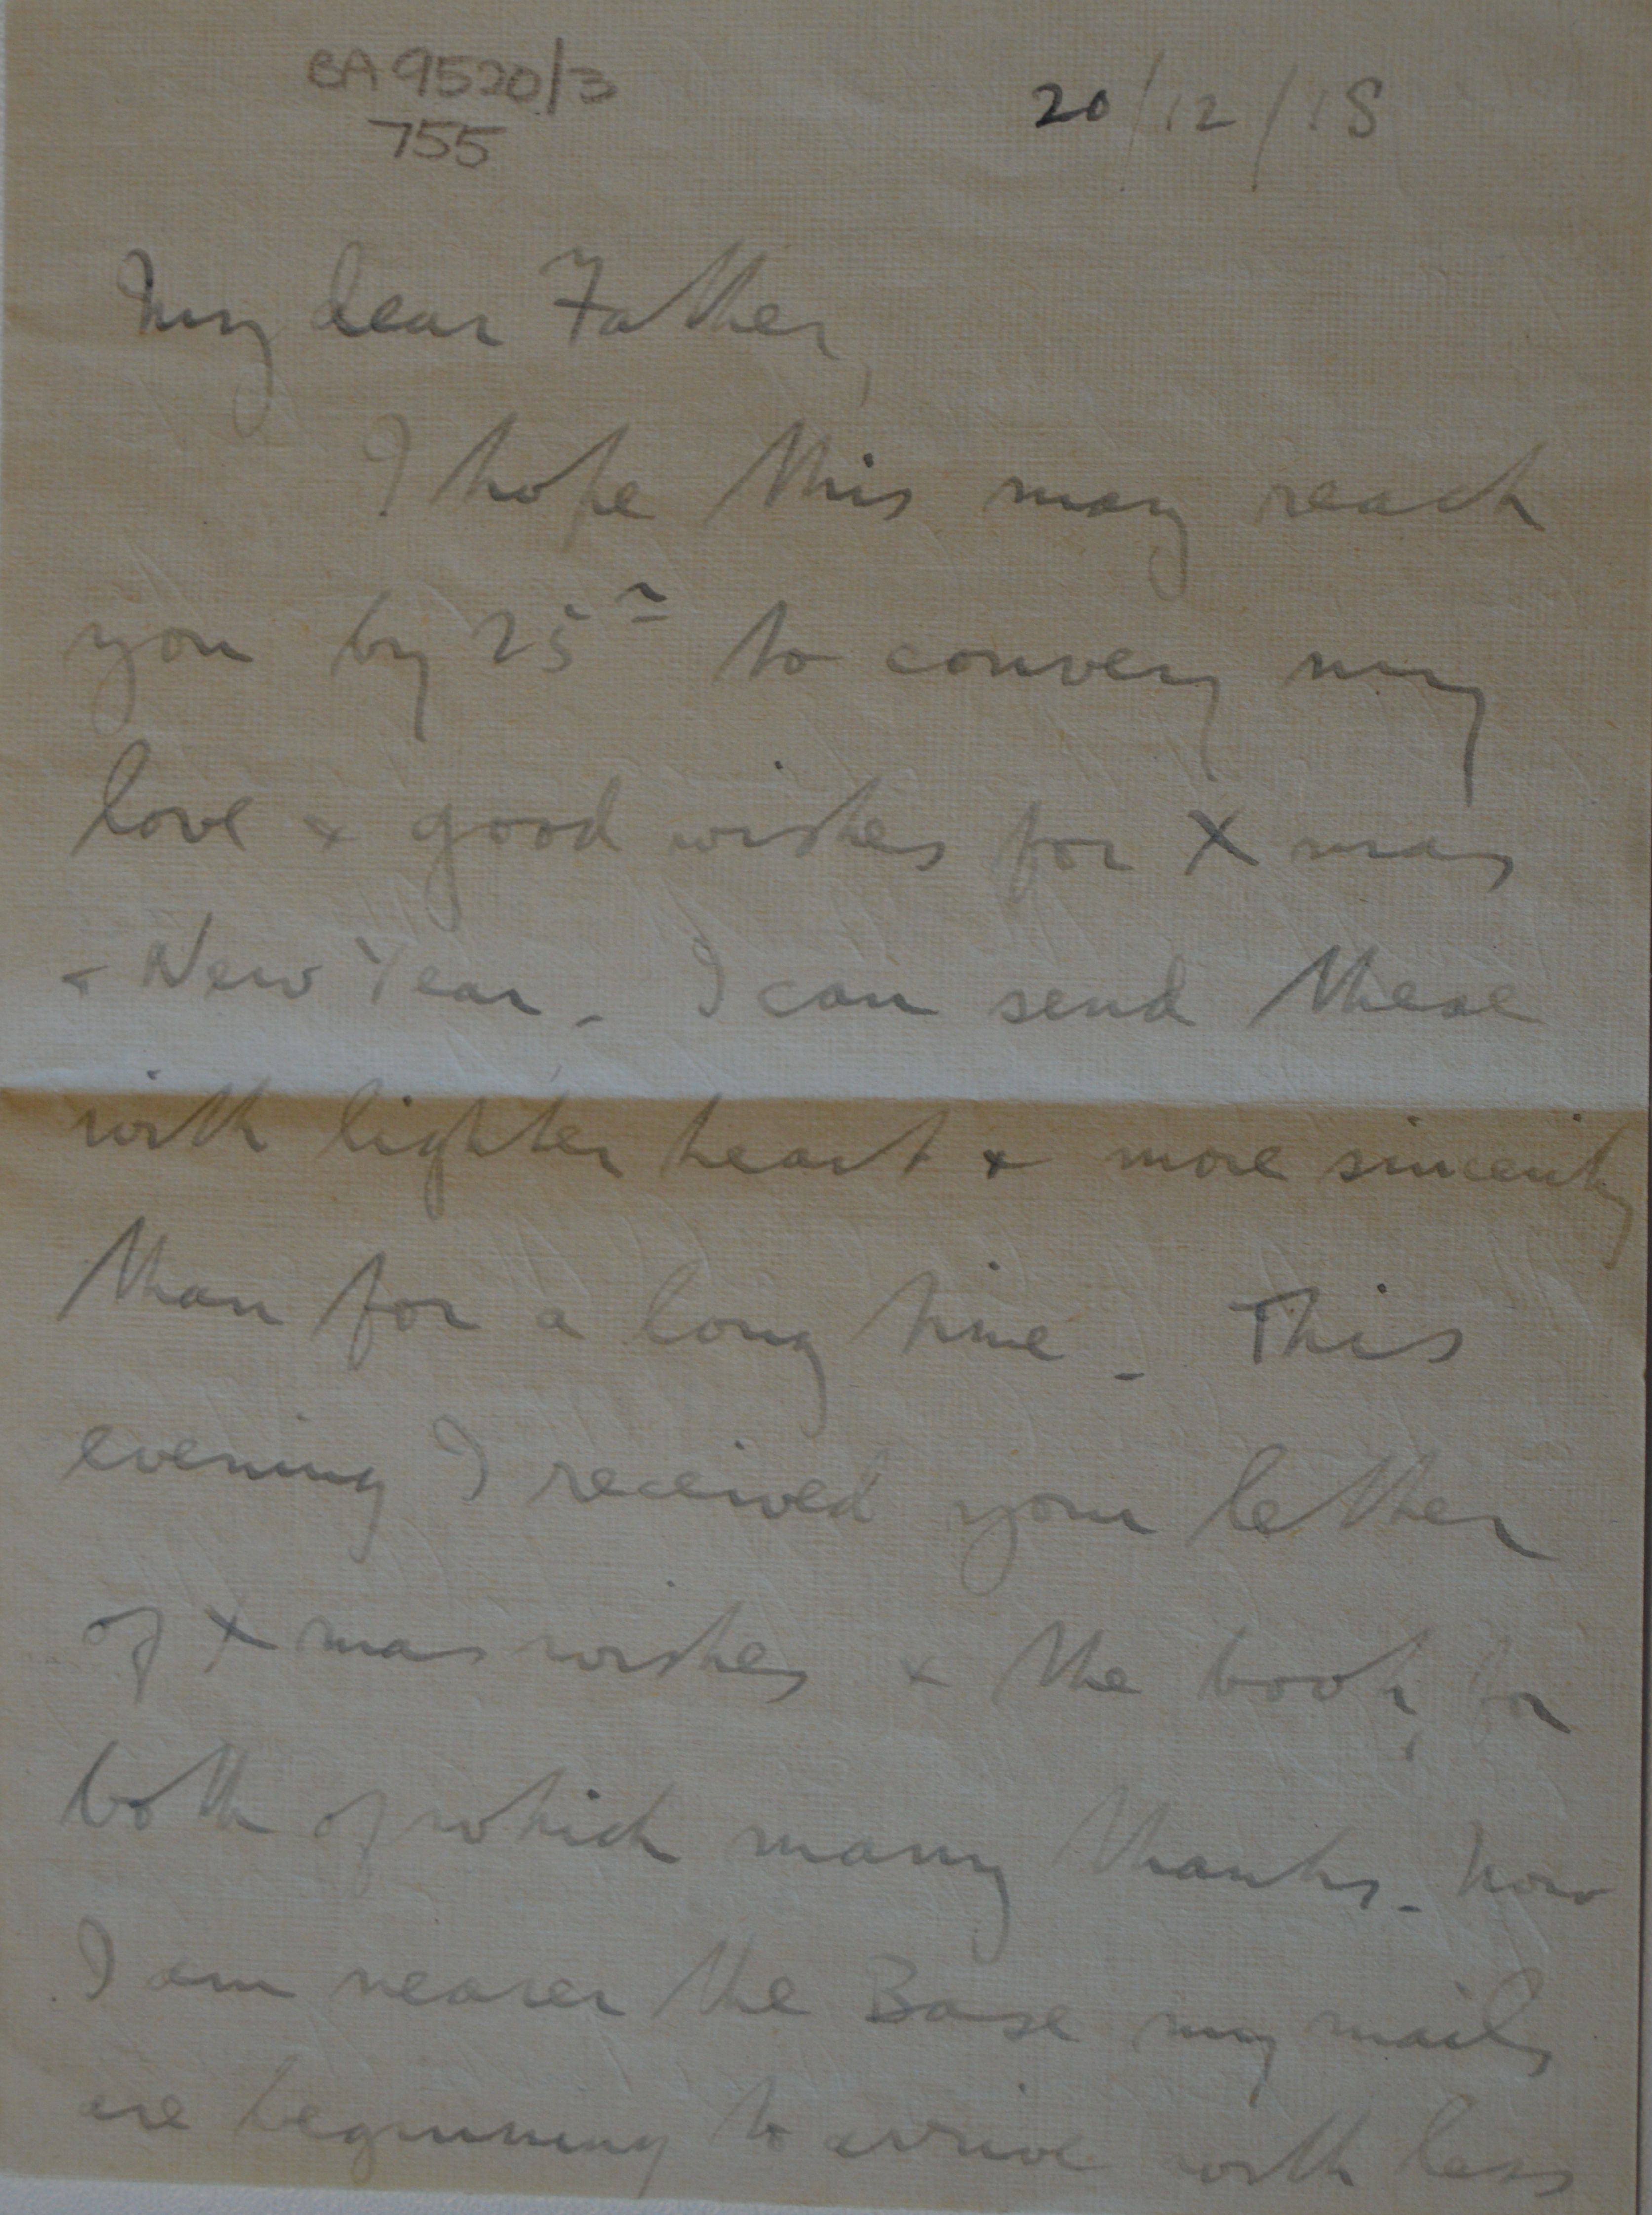 BA 9520/3
755
20/12/18
My dear Father,
I hope this may reach
you by 25th to convey my
love & good wishes for Xmas
& New Year. I can send these
with lighter heart & more sincerity
than for a long time. This
evening I received your letter
of Xmas wishes & the book, for
both of which many thanks. Now
I am nearer the Base my mails
are beginning to arrive with less